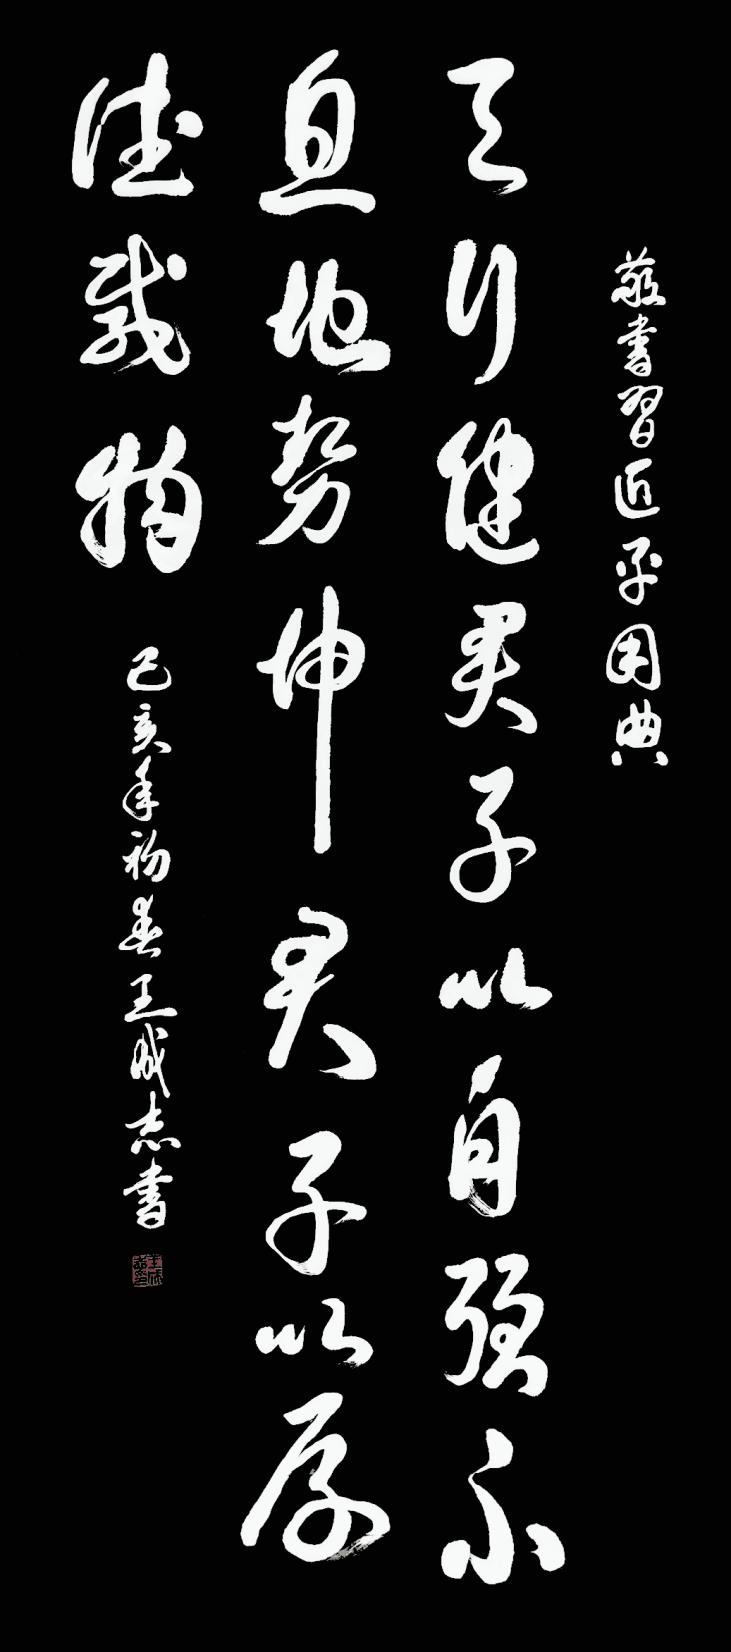 敬書習近平用典
天行健君子以自强不
息地势坤君子以厚
德载物
己亥年初春王成志书